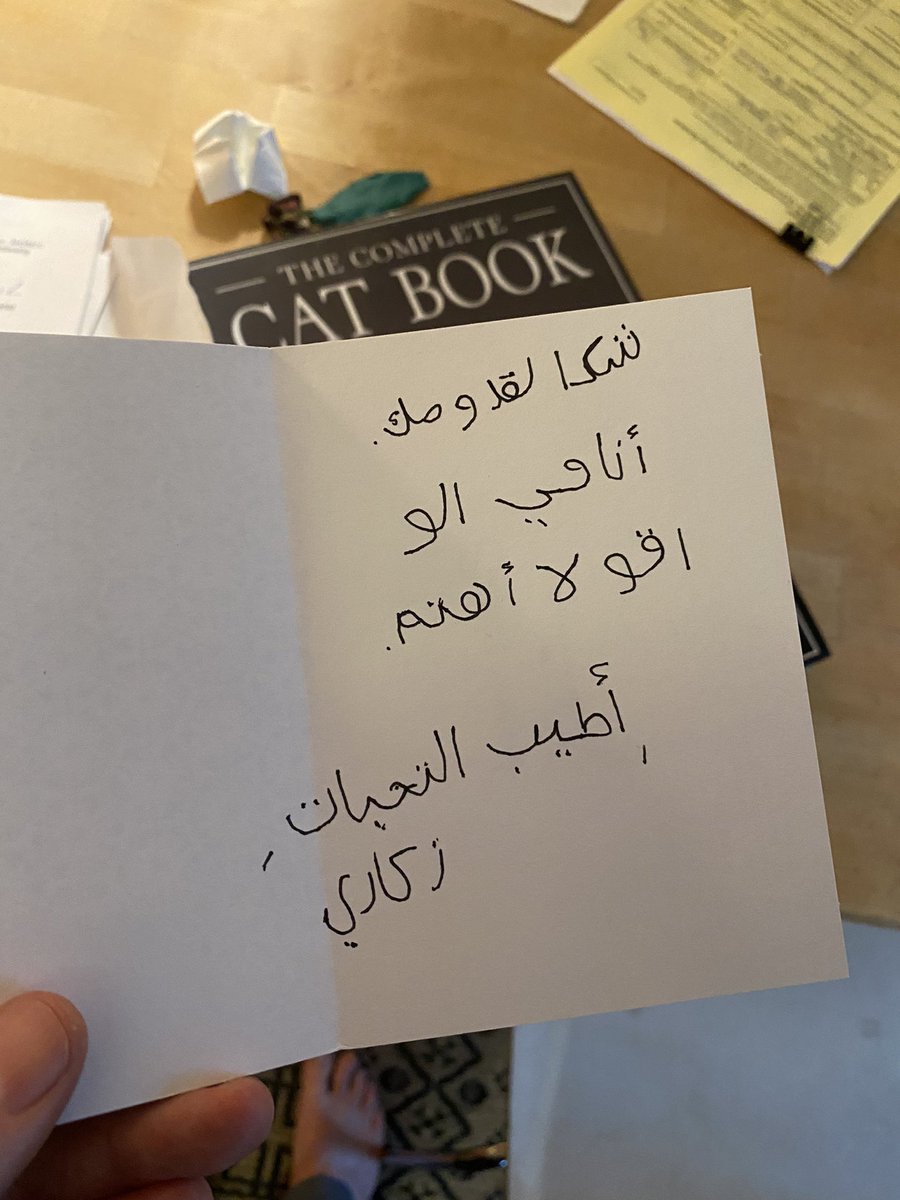 THE COMPLETE
CAT BOOK
شكرا لقدومك.
أنا في الو
اقو لا أهتم.
أطيب التحيات,
زكاري